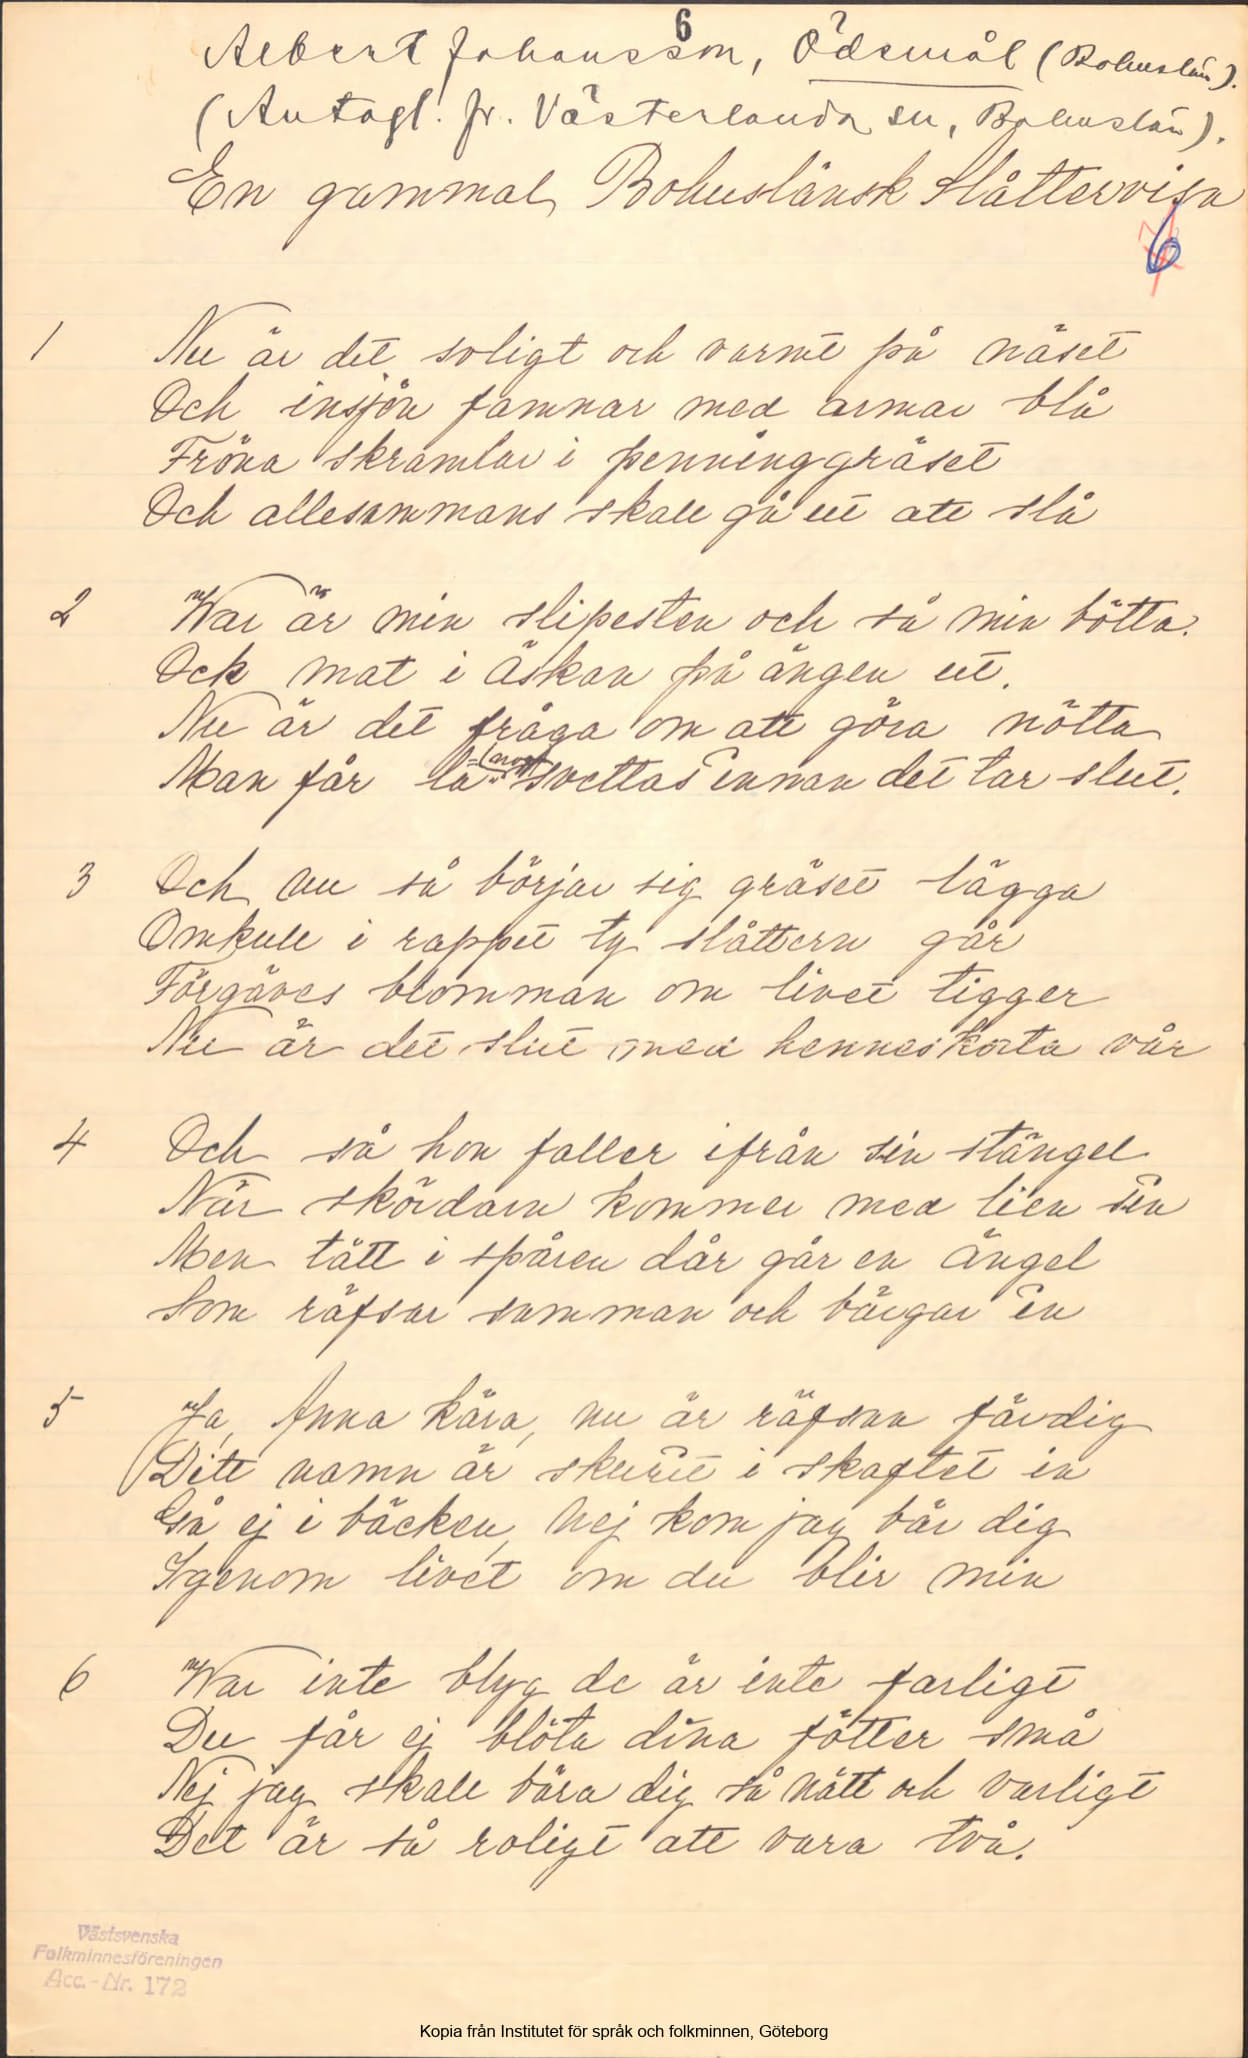 6
Albert Johansson, Ödsmål (Bohuslän).
(Antagl. fr. Västerlanda sn, Bohuslän).
En gammal Bohuslänsk Slåttervisa
6
1 Nu är det soligt och varmt på näset
Och insjön famnar med armar blå
Fröna skramlar i penninggräset
Och allesammans skall gå ut att slå
2 War är min slipesten och så min bötta.
Ock mat i Äskan på ängen ut.
Nu är det fråga om att göra nötta
Man får la svettas innan det tar slut.
3 Och nu så börjar sig gräset lägga
Omkull i rappet ty slåttern går
Förgäves blomman om livet tigger
Nu är det slut med hennes korta vår
4 Och så hon faller ifrån sin stängel
När skördarn kommer med lien sin
Men tätt i spåren där går en Ängel
Som räfsar samman och bärgar in
5 Ja, Anna kära, nu är räfsan färdig
Ditt namn är skurit i skaftet in
Gå ej i bäcken, Nej kom jag bär dig
Igenom livet om du blir min
6 War inte blyg de är inte farligt
Du får ej blöta dina fötter små
Nej jag skall bära dig så nätt och varligt
Det är så roligt att vara två.
Västsvenska
Folkminnesföreningen
Acc.-Nr. 172
Kopia från Institutet för språk och folkminnen, Göteborg